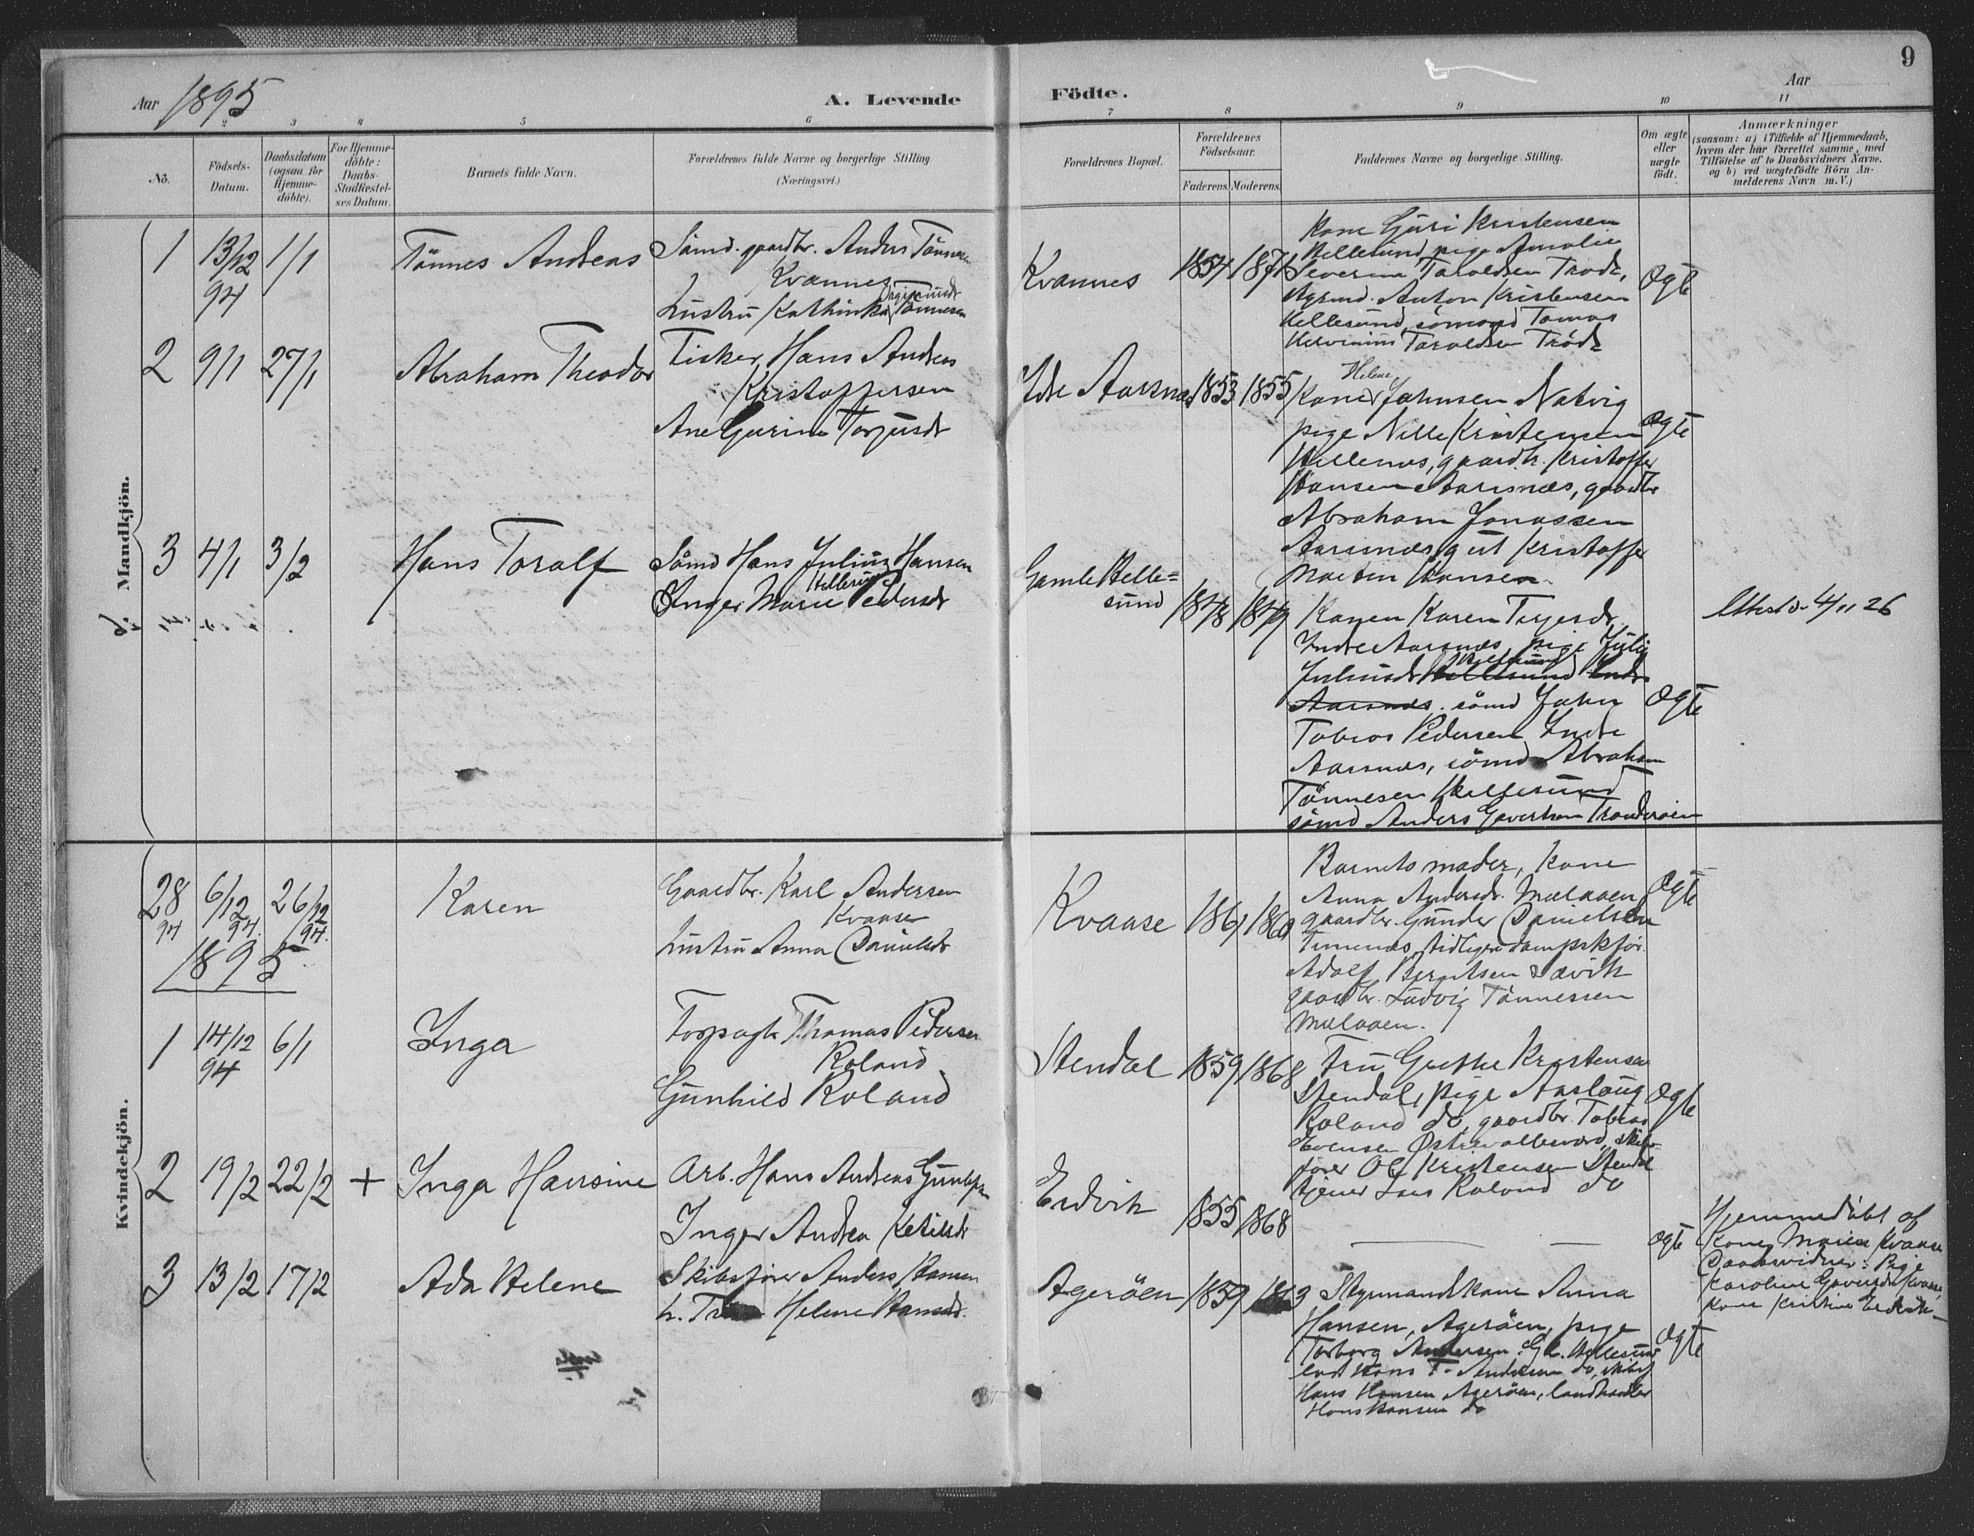 9
Aar 1895
A. Levende
Födte.
Aar
2 3 4 5 6 7 8 9 10 11
No.
Födsels-
Datum.
Daabsdatum
(ogsaa for
Hjemme-
döbte).
For Hjemme-
döbte:
Daabs-
Stadfæstel-
ses Datum.
Barnets fulde Navn.
Forældrenes fulde Navne og borgerlige Stilling
(Næringsvei.)
Forældrenes Bopæl.
Forældrenes
Födselsaar.
Faderens. Moderens.
Faddernes Navne og borgerlige Stilling.
Om ægte
eller
uægte
födt.
Anmærkninger
(saasom: a) i Tilfælde af Hjemmedaab,
hvem der har forrettet samme, med
Tilföielse af to Daabsvidners Navne.
og b) ved uægtefödte Börn An-
melderens Navn m. V.)
Mandkjön.
1 13/12 94 1/1 Tönnes Andreas
Sömd. gaardbr. Anders Tönnesen
Kvannes
hustru Kathinka Tönnesen
Kvannes 1854 1871
Kone Guri Kristensen
Hellesund, pige Amalie
Severine Taroldsen Trods,
Anton Kristensen
Hellesund, sömand Tomas
Taroldsen
ægte
2 9/1 27/1 Abraham Theodor
Fisker, Hans Andreas
Kristoffersen
Ane Gurine Torjusdt
Ydre Aarsnæs 1853 1855
Helene
Kone Johnsen Natvig
pige Nille Kristensen
Hellenes, gaardbr. Kristoffer
Hansen Aarsnæs, gaardbr
Abraham Jonassen
Aarsnæs, gut Kristoffer
Martin Hansen
ægte
3 4/1 3/2 Hans Toralf
Sömd Hans Julius Hansen
Hellesund
Inger Marie Pedersdt
Gamle Helle=
sund
1848 1849
Konen Karen Terjesdt
Indre Aarsnæs, pige Julie
Juliusdt Hellesund Indre
Aarsnæs. sömd John
Tobias Pedersen Indre
Aarsnæs, sömd Abraham
Tönnesen Hellesund
sömd Anders Goverksen Trondersöen
ægte
Attest d. 4/11 26
Kvindekjön.
28 94 6/12 94. 26/12 94. Karen
Gaardbr. Karl Andersen
Kvaase
hustru Anna Danielsdt
Kvaase 1861 1860
Barnets moder, kone
Anna Andersdt. Mælaaen,
gaardbr. Gunder Danielsen
Timenæs, tidligere dampskför.
Adolf Berntsen Sævik
gaardbr. Ludvig Tönnessen
Mælaaen.
ægte
1895
1 14/12 94 6/1 Inga
Forpagter Thomas Pedersen
Roland
Gunhild Roland
Stendal 1859 1868
Fru Grethe Kristensen
Stendal, pige Aaslaug
Roland do, gaardbr. Tobias
Evensen Östrevallesverd, skibs-
förer Ole Kristensen Stendal
tjener Lars Roland do
ægte
2 19/2 22/2 + Inga Hansine
Arb. Hans Andreas
Inger Andrea Ketilsdt
Eidvik 1855 1868
ægte
Hjemmedöbt af
Kone Maren Kvaase
Daabsvidner: Pige
Karoline Kvaase,
Kone Kristine Eidvik
3 13/2 17/2 Ada Helene
Skibsförer Anders Hansen
h. Fru Helene Hansdt.
Ageröen 1859
Styrmandskone Anna
Hansen, Ageröen, pige
Torborg Andersen Gl. Hellesund
Hans T. Andersen do, skibsf
Hans Hansen Ageröen, landhandler
Hans Hansen do
ægte